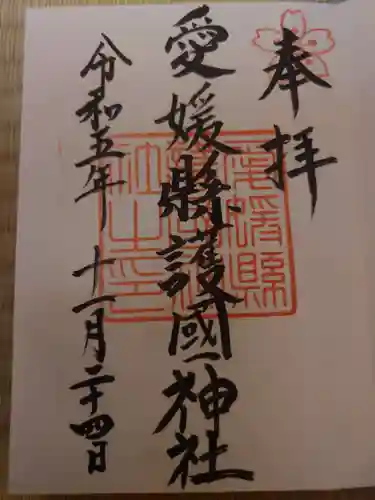 奉拝
愛媛縣護國神社
令和五年 十一月二十四日
愛媛縣護國神社之印